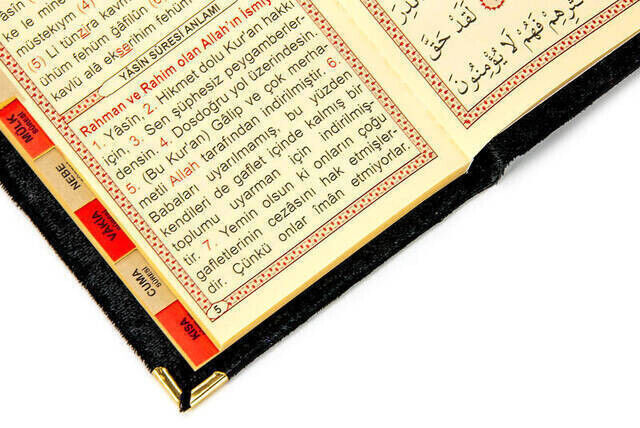 ke ile mine
müstekıym (4)
(5) Li tünzira kavmen
ühüm fehüm ğâfilûn
kavlü alâ ekserihim fehüm
YÂSİN SURESİ ANLAMI
Rahman ve Rahim olan Allah'ın İsmiy
1. Yâsîn. 2. Hikmet dolu Kur'an hakkı
için, 3. Sen şüphesiz peygamberler-
densin. 4. Dosdoğru yol üzerindesin.
5. (Bu Kur'an) Gâlip ve çok merha-
metli Allah tarafından indirilmiştir. 6.
Babaları uyarılmamış, bu yüzden
kendileri de gaflet içinde kalmış bir
toplumu uyarman için indirilmiş-
tir. 7. Yemin olsun ki onların çoğu
gafletlerinin cezasını hak etmişler-
dir. Çünkü onlar îmân etmiyorlar.
5
MÜLK
SURESİ
NEBE
VAKIA
CUMA
SURESİ
KISA
لَقَدْ حَقَّ
فَهُمْ لَا يُؤْمِنُونَ